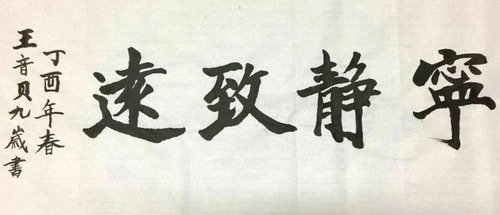 寧靜致遠
丁酉年春
王音貝九歲書